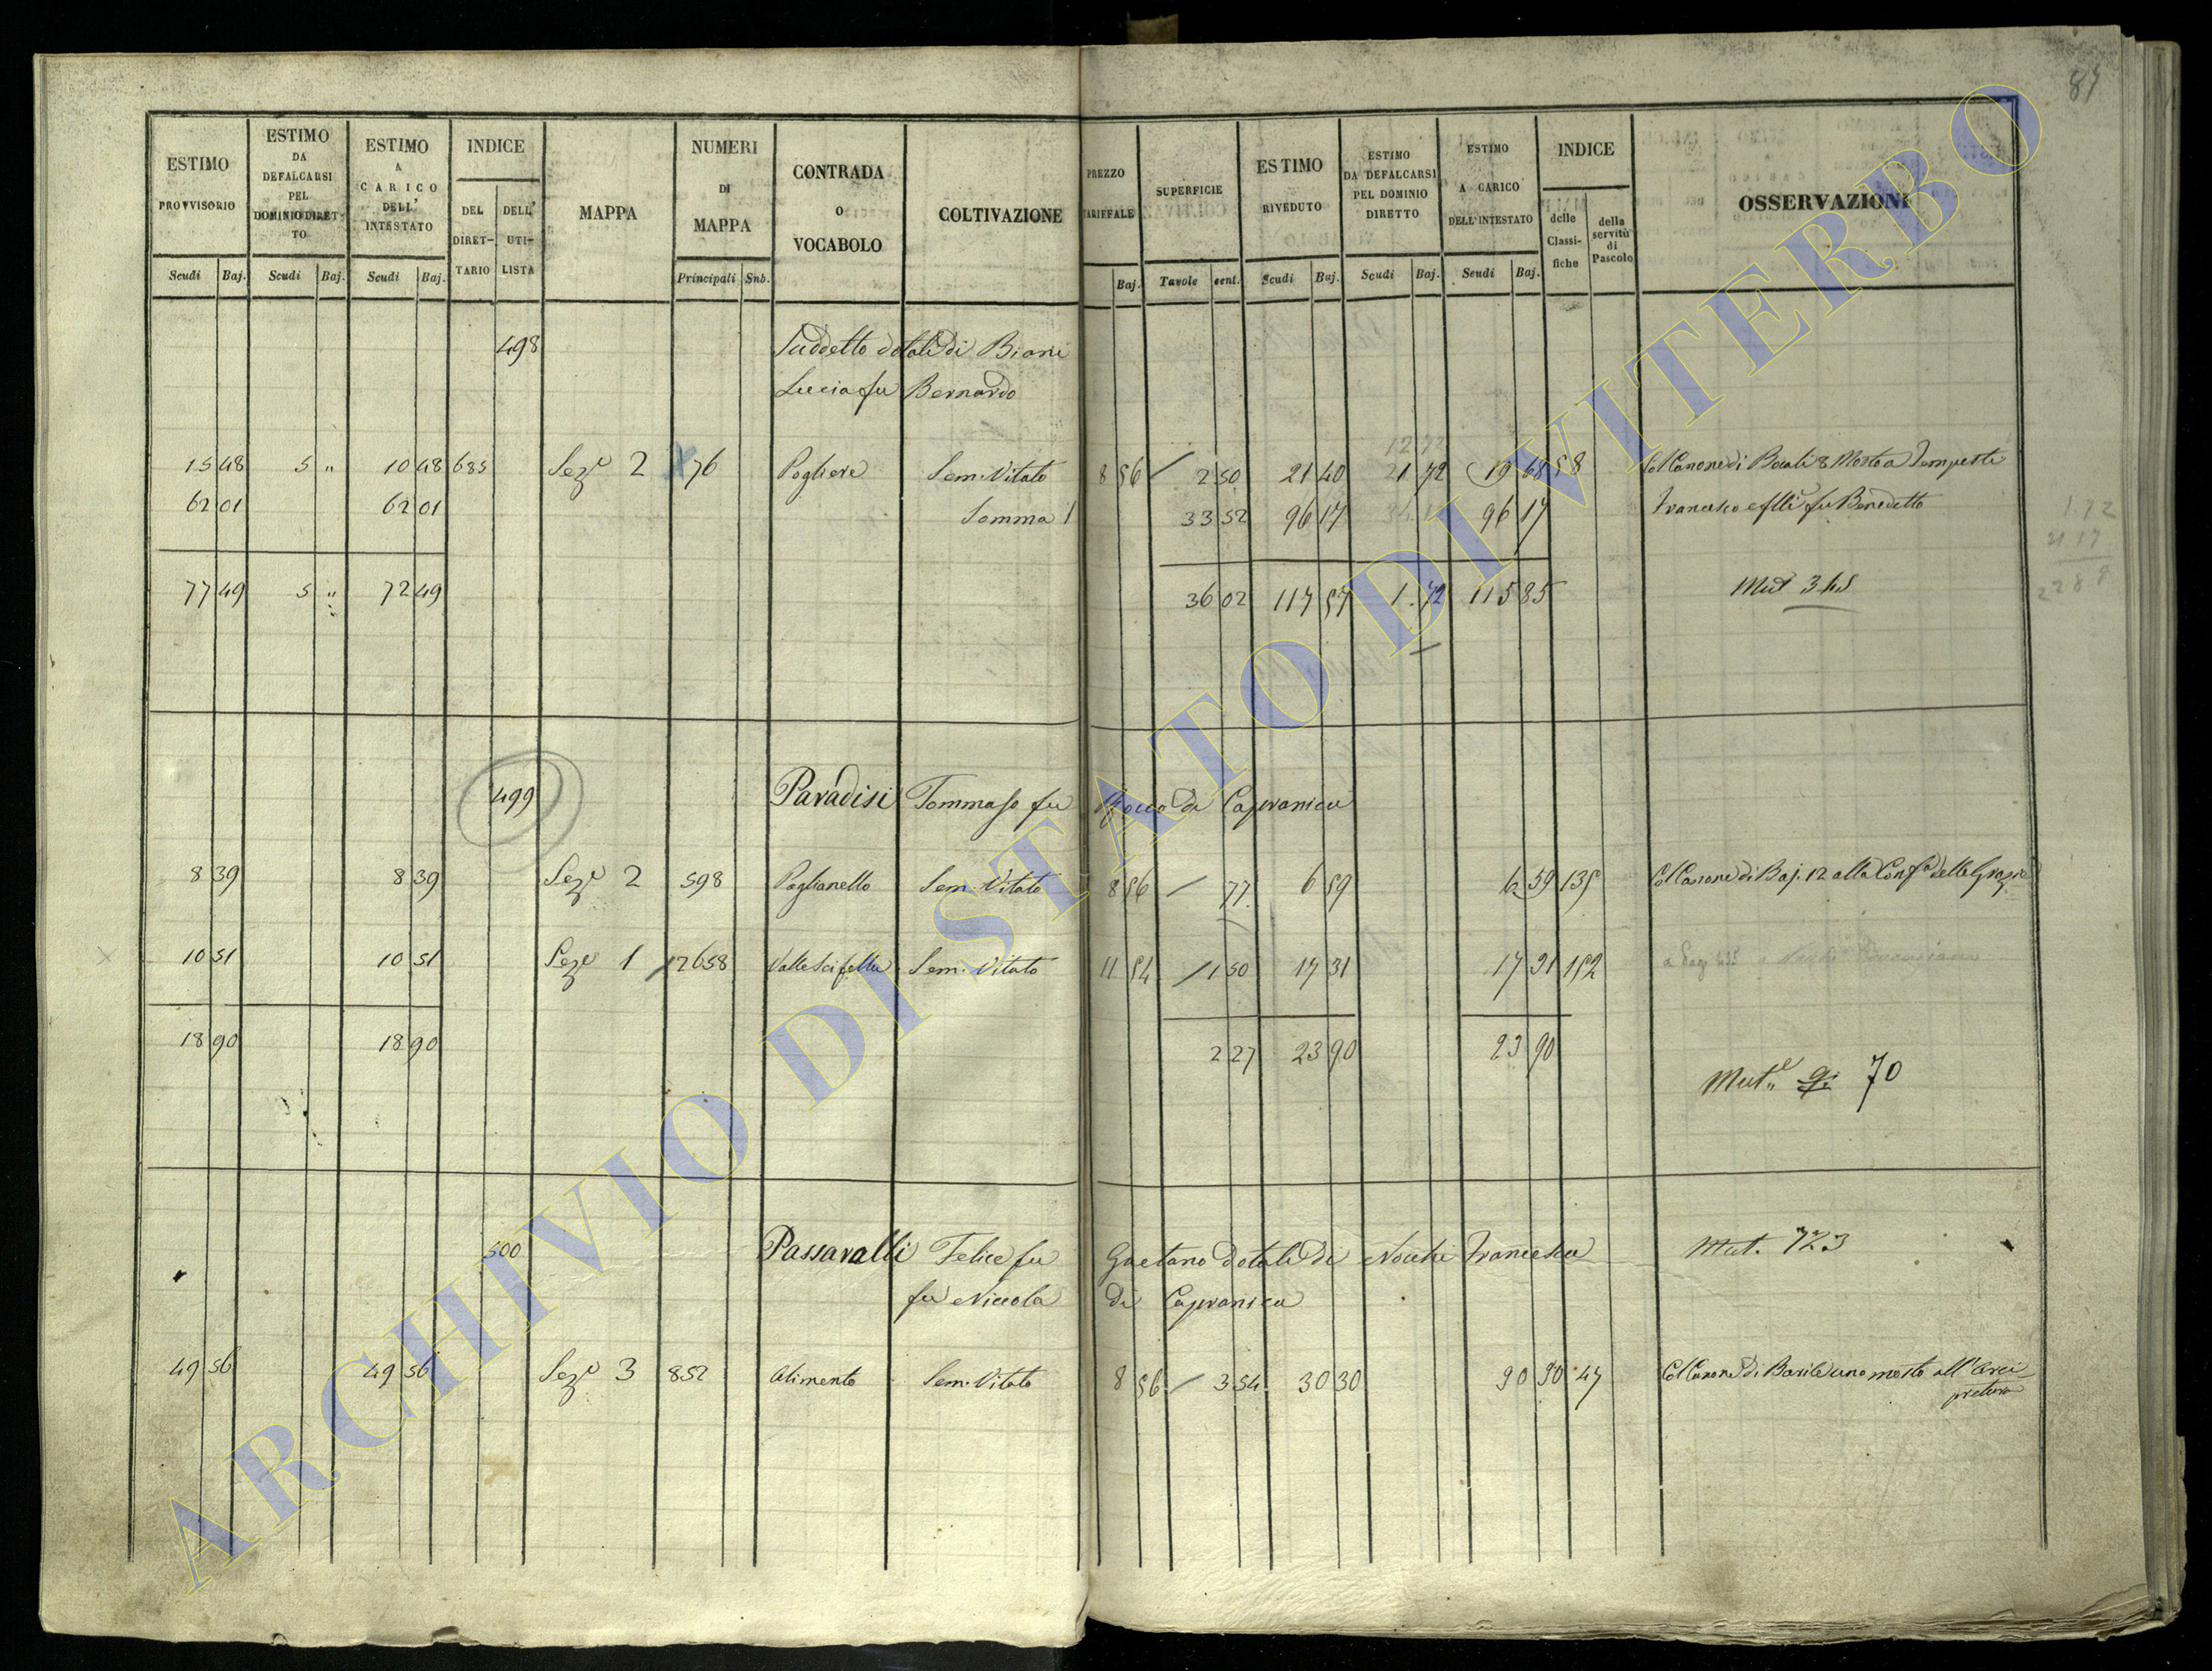 87
ESTIMO PROVVISORIO Scudi Baj.
ESTIMO DA DEFALCARSI PEL DOMINIO DIRETTO Scudi Baj.
ESTIMO A CARICO DELL' INTESTATO Scudi Baj.
INDICE DEL DIRETTARIO DELL' UTILISTA
MAPPA
NUMERI DI MAPPA Principali Sub.
CONTRADA O VOCABOLO
COLTIVAZIONE
PREZZO TARIFFALE Baj.
SUPERFICIE Tavole cent.
ESTIMO RIVEDUTO Scudi Baj.
ESTIMO DA DEFALCARSI PEL DOMINIO DIRETTO Scudi Baj.
ESTIMO A CARICO DELL'INTESTATO Scudi Baj.
INDICE delle Classifiche della servitù di Pascolo
OSSERVAZIONI
498 Suddetto dotali di Biani
Lucia fu Bernardo
15 48 5 " 10 48 685 Seze 2 76 Pogliere Sem. Vitato 8 56 2 50 21 40 1 72 19 68 58 Col Canone di Bocali 8 Mosto a Tempesti
62 01 62 01 Somma 33 52 96 17 96 17 Francesco e flli fu Benedetto
77 49 5 " 72 49 36 02 117 57 1.72 115 85 Mut 345
499 Paradisi Tommaso fu Rocco di Capranica
8 39 8 39 Seze 2 598 Poglianello Sem. Vitato 8 56 77 6 59 6 59 135 Col Canone di Baj. 12 alla Confa delle Grazie
10 51 10 51 Seze 1 12658 Valle Scifella Sem. Vitato 11 54 1 50 17 31 17 31 152
18 90 18 90 2 27 23 90 23 90
Mute 70
500 Passavalli Felice fu Gaetano dotali di Nocchi Francesca Mut. 723
fu Niccola di Capranica
49 56 49 56 Seze 3 852 Alimento Sem. Vitato 8 56 3 54 30 30 30 30 47 Col Canone di Barile uno mosto all'Arci
pretura
ARCHIVIO DI STATO DI VITERBO